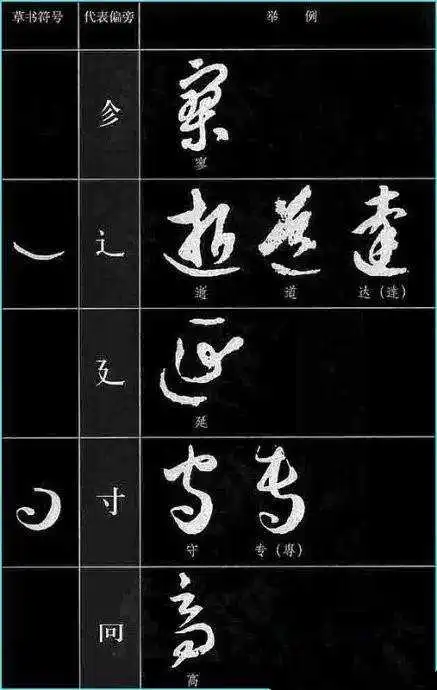 草书符号 代表偏旁 举例
㐱
寥
辶
逝 道 达(達)
廴
延
寸
守 专(專)
冋
高